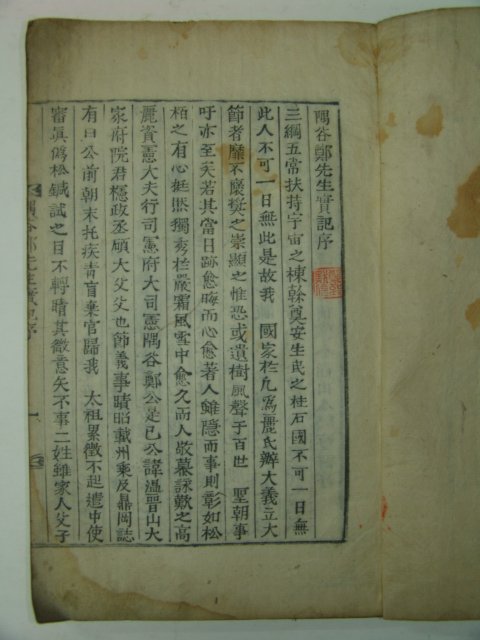 隅谷鄭先生實記序
三綱五常扶持宇宙之棟幹奠安生民之柱石國不可一日無
此人不可一日無此是故我 國家於凡爲麗氏辦大義立大
節者靡不褒奬之崇顯之惟恐或遺樹風聲于百世 聖朝事
吁亦至矣若其當日跡愈晦而心愈著人雖隱而事則彰如松
栢之有心挺然獨秀於嚴霜風雪中愈久而人敬慕詠歎之高
麗資憲大夫行司憲府大司憲隅谷鄭公是已公諱溫晋山大
家府院君穩政丞碩大父父也節義事蹟昭載州乘及鼎岡誌
有曰公前朝末托疾靑盲棄官歸我 太祖累徵不起遣中使
審眞僞松鍼試之目不轉睛其微意矣不事二姓雖家人父子
隅谷鄭先生實記序
一